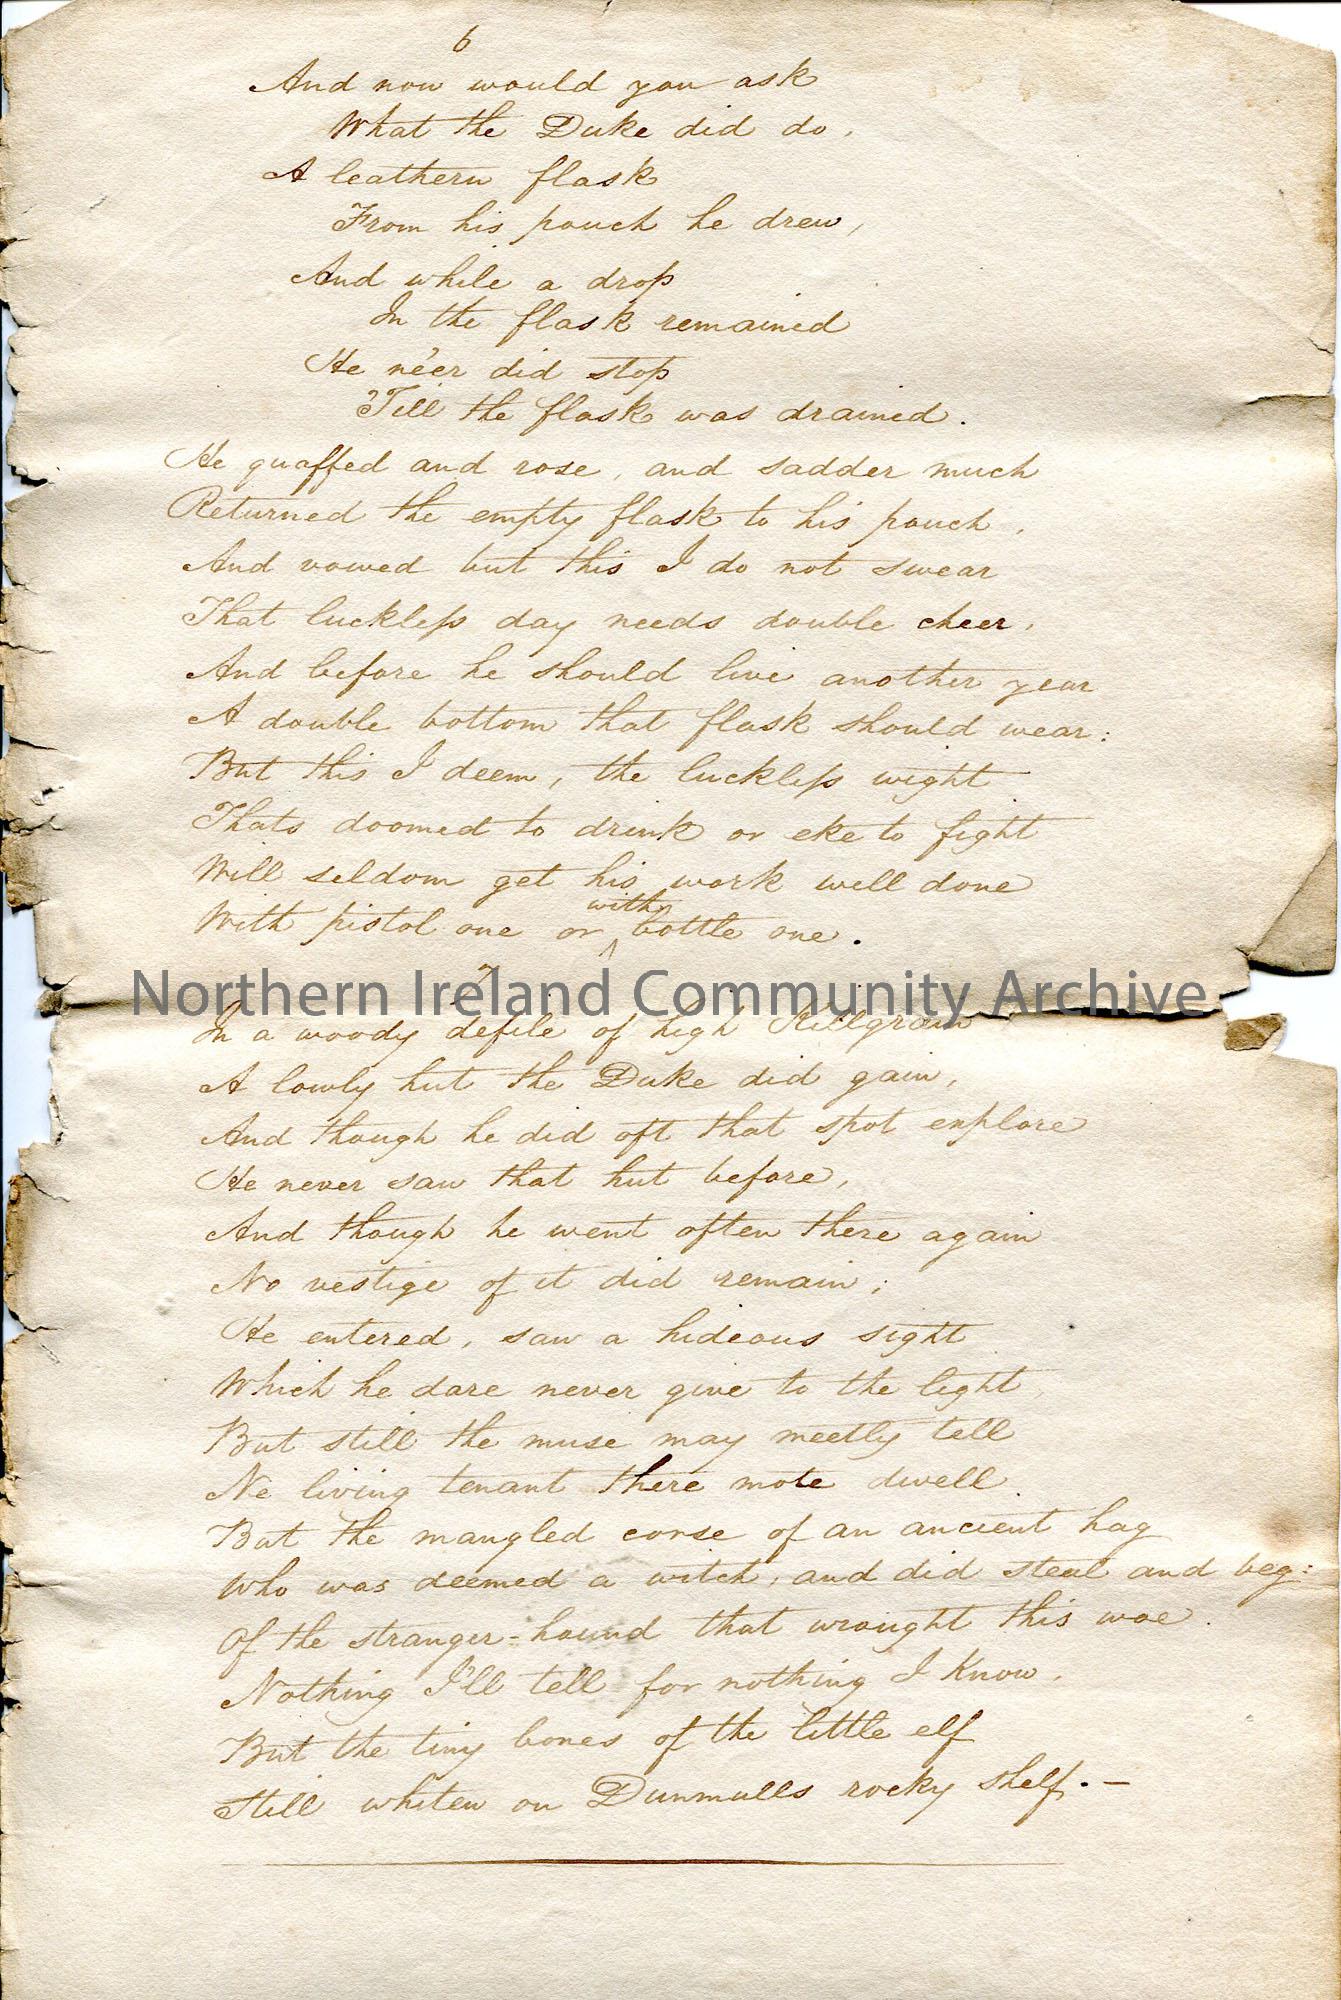 6
And now would you ask
What the Duke did do,
A leathern flask
From his pouch he drew,
And while a drop
In the flask remained
He ne'er did stop
'Till the flask was drained.
He quaffed and rose, and sadder much
Returned the empty flask to his pouch,
And vowed but this I do not swear
That luckless day needs double cheer,
And before he should live another year
A double bottom that flask should wear:
But this I deem, the luckless wight
Thats doomed to drink or eke to fight
Will seldom get his work well done
with
With pistol one or ^ bottle one.
7
Northern Ireland Community Archive
In a woody defile of high Killgrain
A lowly hut the Duke did gain,
And though he did oft that spot explore
He never saw that hut before,
And though he went often there again
No vestige of it did remain;
He entered, saw a hideous sight
Which he dare never give to the light,
But still the muse may meetly tell
Ne living tenant there mote dwell.
But the mangled corse of an ancient hag
Who was deemed a witch, and did steal and beg:
Of the stranger-hound that wrought this woe.
Nothing I'll tell for nothing I know,
But the tiny bones of the little elf
Still whiten on Dunmulls rocky shelf. —